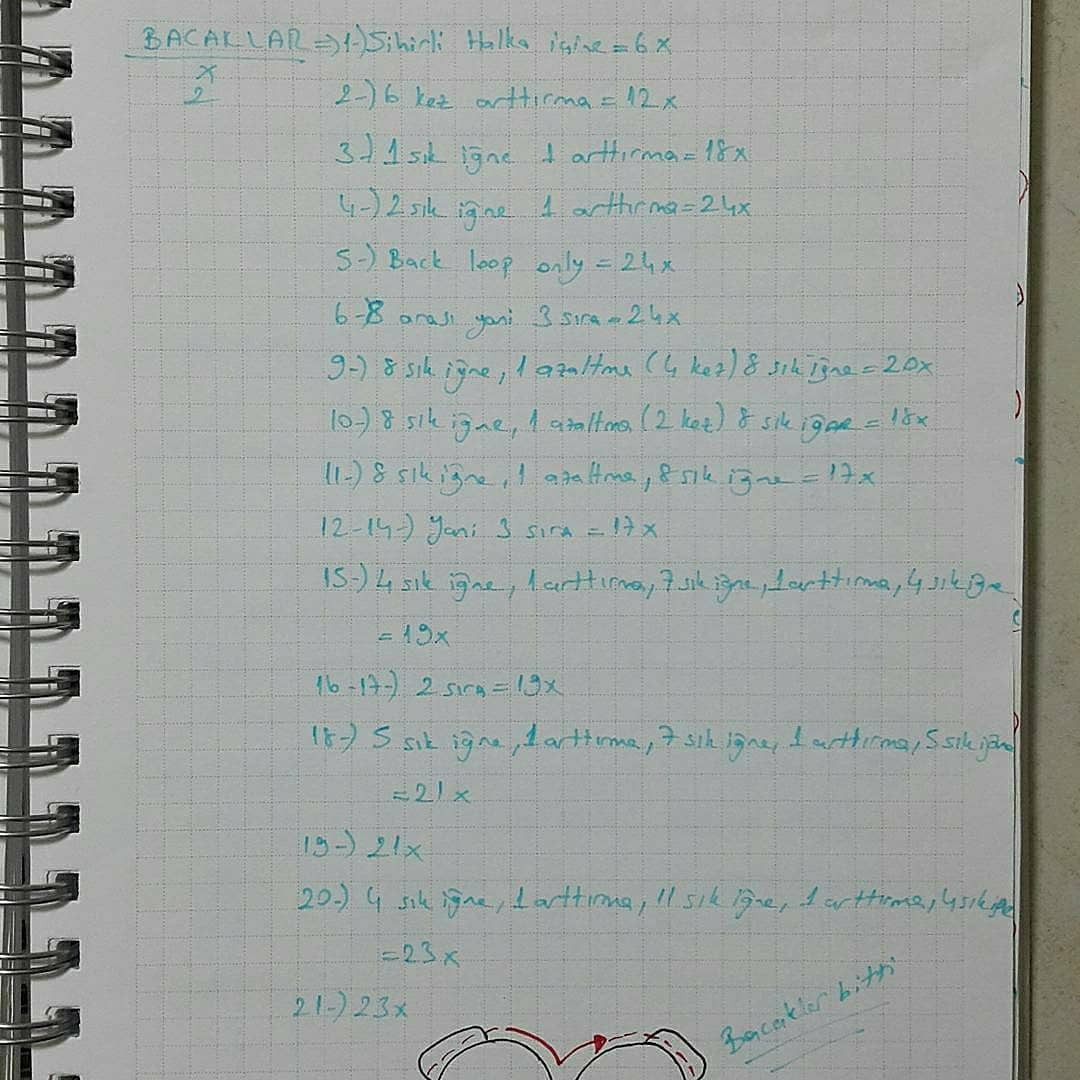 BACAKLAR => 1-) Sihirli Halka içine = 6x
x
2
2-) 6 kez arttırma = 12x
3-) 1 sık iğne 1 arttırma = 18x
4-) 2 sık iğne 1 arttırma = 24x
5-) Back loop only = 24x
6-8 arası yani 3 sıra = 24x
9-) 8 sık iğne, 1 azaltma (4 kez) 8 sık iğne = 20x
10-) 8 sık iğne, 1 azaltma (2 kez) 8 sık iğne = 18x
11-) 8 sık iğne, 1 azaltma, 8 sık iğne = 17x
12-14-) Yani 3 sıra = 17x
15-) 4 sık iğne, 1 arttırma, 7 sık iğne, 1 arttırma, 4 sık iğne
= 19x
16-17-) 2 sıra = 19x
18-) 5 sık iğne, 1 arttırma, 7 sık iğne, 1 arttırma, 5 sık iğne
= 21x
19-) 21x
20-) 4 sık iğne, 1 arttırma, 11 sık iğne, 1 arttırma, 4 sık iğne
= 23x
21-) 23x
Bacaklar bitti